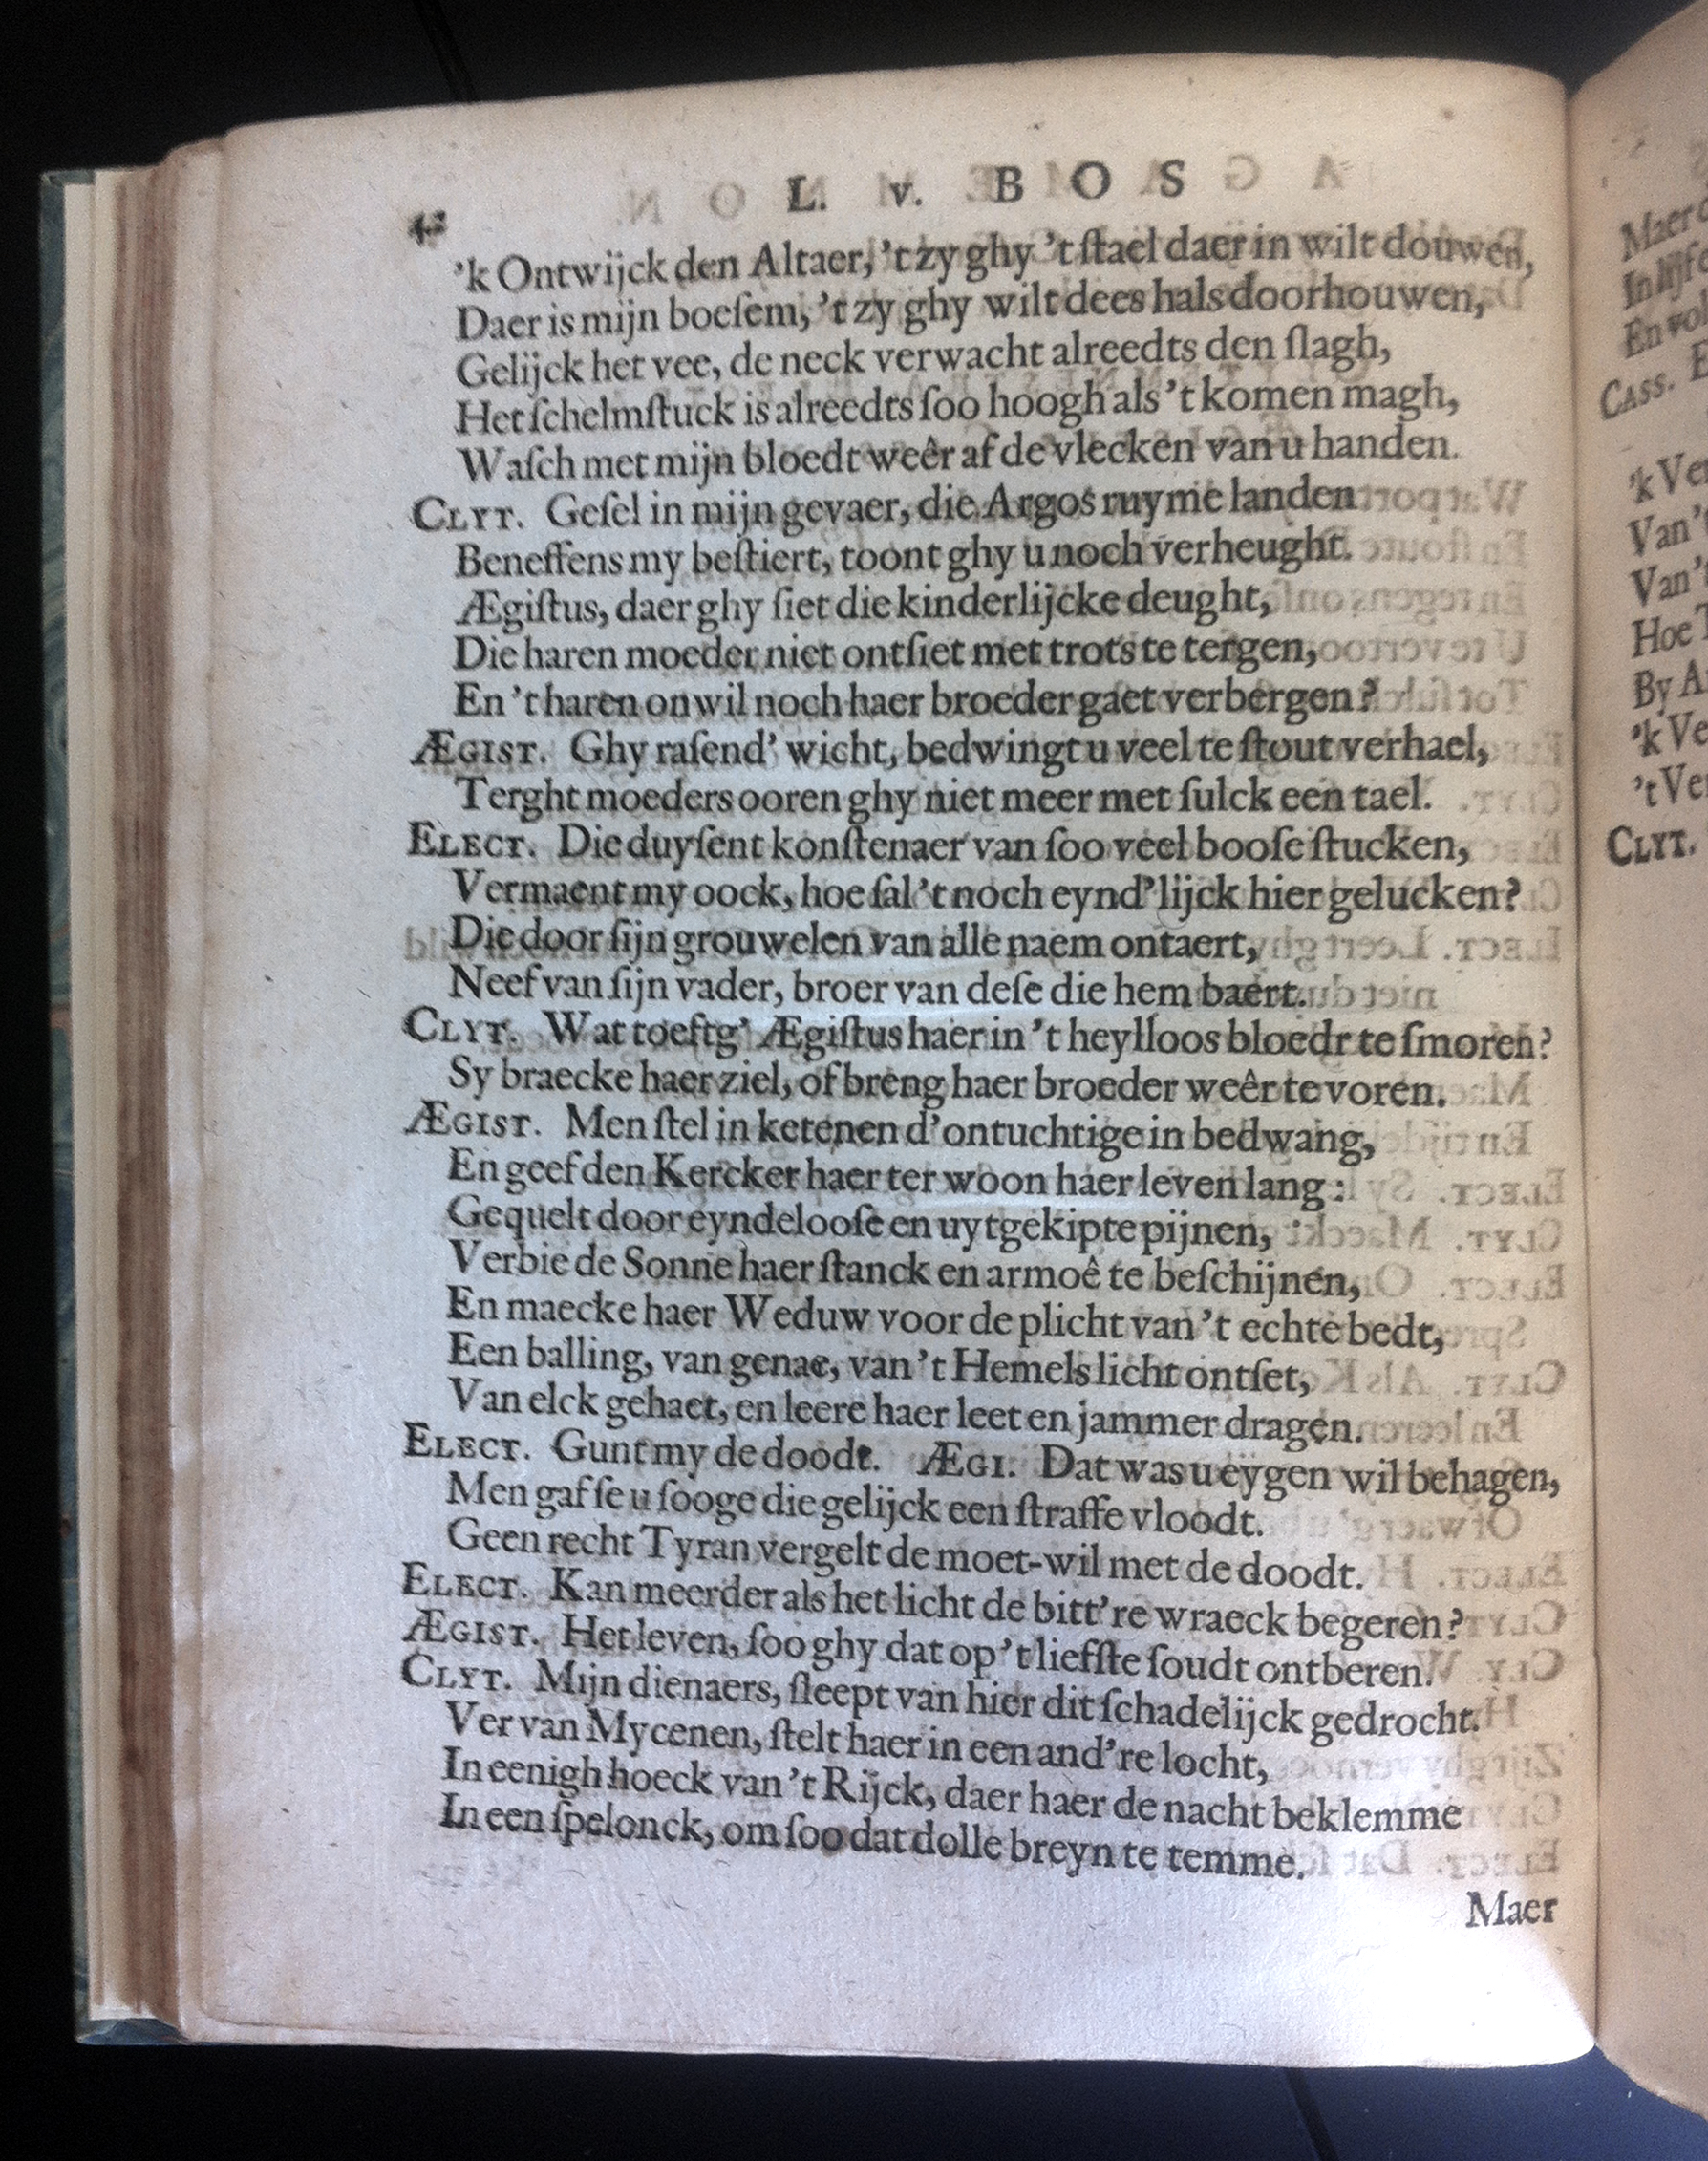 L. v. BOS
'k Ontwijck den Altaer, 't zy ghy 't ſtael daer in wilt douwen,
Daer is mijn boeſem, 't zy ghy wilt dees hals doorhouwen,
Gelijck het vee, de neck verwacht alreedts den ſlagh,
Het ſchelmſtuck is alreedts ſoo hoogh als 't komen magh,
Waſch met mijn bloedt weêr af de vlecken van u handen.
CLYT. Geſel in mijn gevaer, die Argos ruyme landen
Beneffens my beſtiert, toont ghy u noch verheught.
Ægiſtus, daer ghy ſiet die kinderlijcke deught,
Die haren moeder niet ontſiet met trots te tergen,
En 't haren onwil noch haer broeder gaet verbergen?
ÆGIST. Ghy raſend' wicht, bedwingt u veel te ſtout verhael,
Terght moeders ooren ghy niet meer met ſulck een tael.
ELECT. Die duyſent konſtenaer van ſoo veel booſe ſtucken,
Vermaent my oock, hoe ſal 't noch eynd'lijck hier gelucken?
Die door ſijn grouwelen van alle naem ontaert,
Neef van ſijn vader, broer van deſe die hem baert.
CLYT. Wat toeftg' Ægiſtus haer in 't heylloos bloedt te ſmoren?
Sy braecke haer ziel, of breng haer broeder weêr te voren.
ÆGIST. Men ſtel in ketenen d'ontuchtige in bedwang,
En geef den Kercker haer ter woon haer leven lang:
Gequelt door eyndelooſe en uytgekipte pijnen,
Verbie de Sonne haer ſtanck en armoê te beſchijnen,
En maecke haer Weduw voor de plicht van 't echte bedt,
Een balling, van genae, van 't Hemels licht ontſet,
Van elck gehaet, en leere haer leet en jammer dragen.
ELECT. Gunt my de doodt. ÆGI. Dat was u eygen wil behagen,
Men gaf ſe u ſooge die gelijck een ſtraffe vloodt.
Geen recht Tyran vergelt de moet-wil met de doodt.
ELECT. Kan meerder als het licht de bitt're wraeck begeren?
ÆGIST. Het leven, ſoo ghy dat op 't liefſte ſoudt ontberen.
CLYT. Mijn dienaers, ſleept van hier dit ſchadelijck gedrocht.
Ver van Mycenen, ſtelt haer in een and're locht,
In eenigh hoeck van 't Rijck, daer haer de nacht beklemme
In een ſpelonck, om ſoo dat dolle breyn te temme.
Maer
Maer
In
En
CASS.
'k
Van
Van
Hoe
By
'k
't
CLYT.